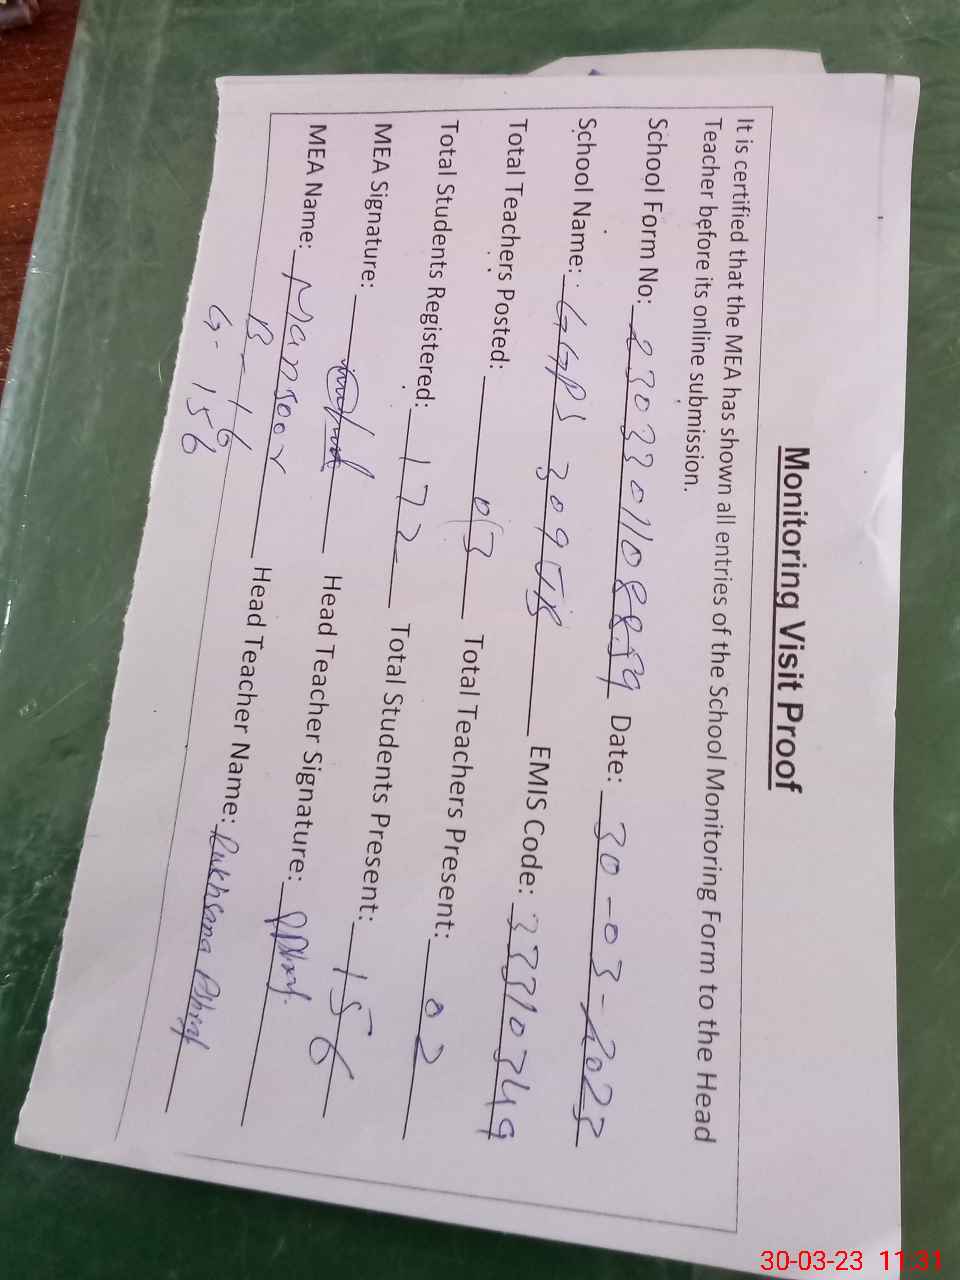 Monitoring Visit Proof
It is certified that the MEA has shown all entries of the School Monitoring Form to the Head
Teacher before its online submission.
School Form No: 2303301108859 Date: 30-03-2023
School Name: GGPS 309 JB EMIS Code: 33310349
Total Teachers Posted: 03 Total Teachers Present: 02
Total Students Registered: 172 Total Students Present: 156
MEA Signature: Head Teacher Signature:
MEA Name: Mansoor Head Teacher Name: Rukhsana Ashraf
B-16
G-156
30-03-23 11:31